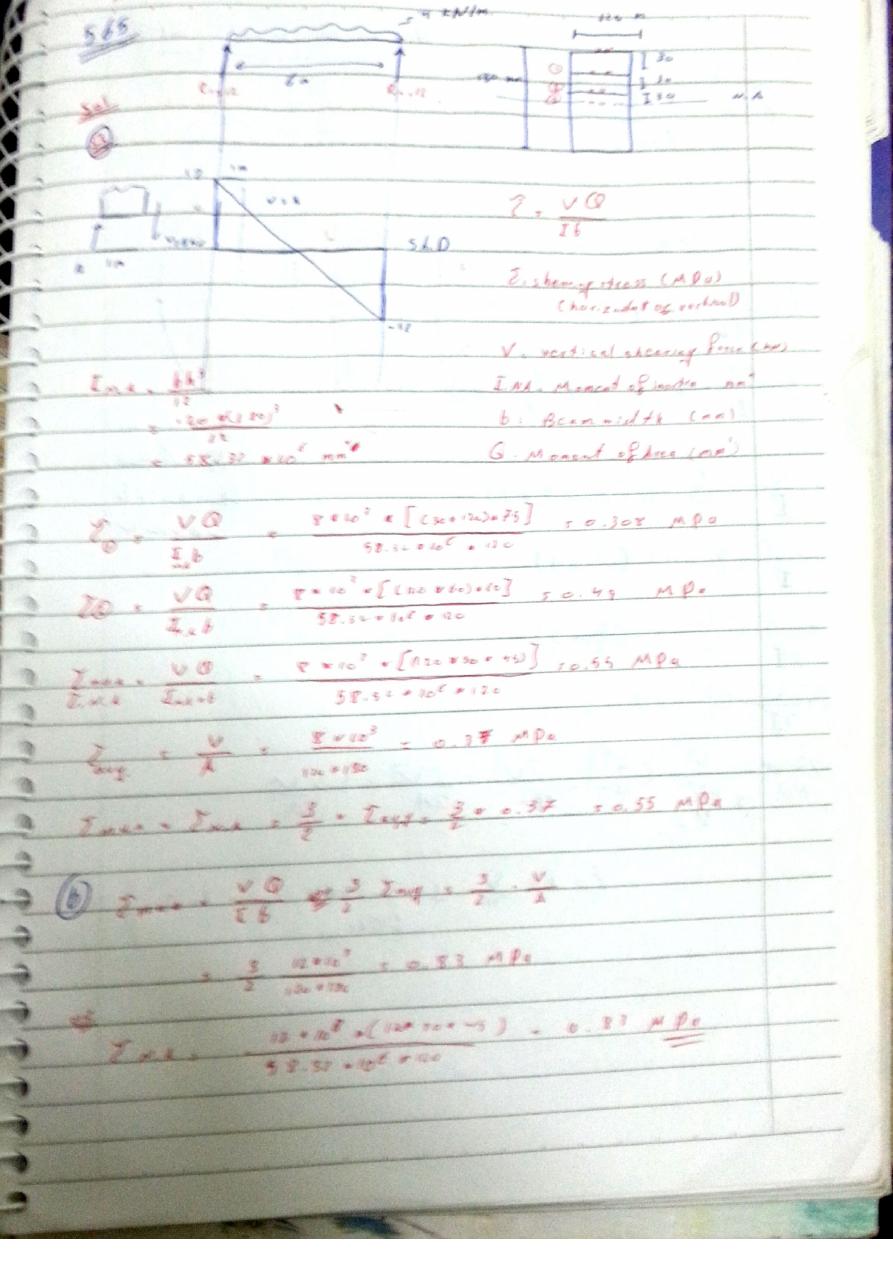 565
4 kN/m
120 m
30
30
30
6 m
N.A
Sol
a
12
1m
S.F.D
-12
1m
τ = VQ / Ib
τ: shearing stress (MPa)
(horizontal of vertical)
V: vertical shearing force
I N.A: Moment of inertia mm
b: Beam width (mm)
Moment of Area (mm³)
= bh³ / 12
= 58.32 * 10⁶ mm⁴
τ① = VQ / I b = 8*10³ * [(30*120)*75] / 58.32*10⁶ * 120 = 0.308 MPa
τ② = VQ / I b = 8*10³ * [(120*60)*60] / 58.32*10⁶ * 120 = 0.49 MPa
τmax = VQ / I * b = 8*10³ * [120*90*45] / 58.32*10⁶ * 120 = 0.55 MPa
τavg = V / A = 8*10³ / 120*180 = 0.37 MPa
τmax = τN.A = 3/2 * τavg = 3/2 * 0.37 = 0.55 MPa
b τmax = VQ / I b 3/2 τavg = 3/2 · V/A
= 3/2 12*10³ / 120*180 = 0.83 MPa
= 0.83 MPa
58.32*10⁶*120